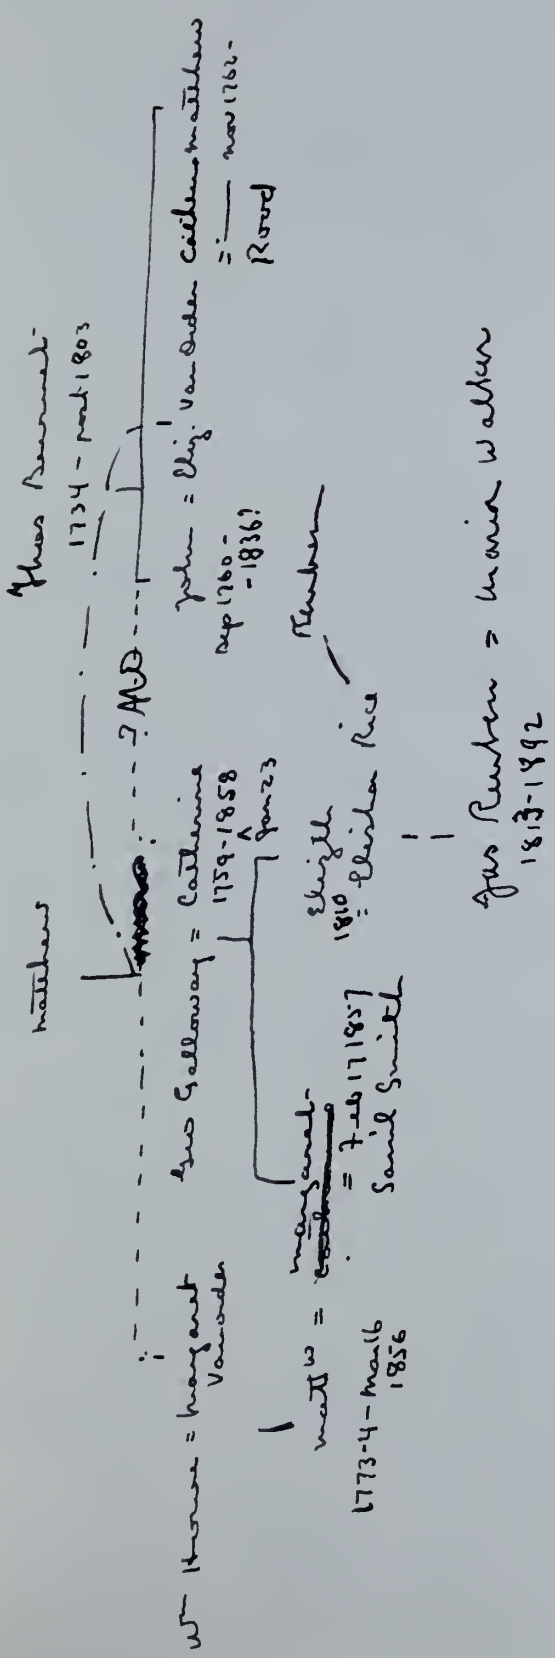 Matthew
Thos
1734 - post 1803
? AVO
Wm Howe = Margaret
Van Order
Geo Galloway = Catherine
1759-1858
Jan 23
John = Eliz. Van Order
Sep 1760 -
- 1836?
Cathern Matthew
= — Nov 1762 -
Rood
Matt W = Margaret
1773-4 - Mar 16
1856
= Feb 17 1857
Saml Smith
Elizth
1810
= Elisha Rice
Reuben
Jas Reuben = Maria Walker
1813-1892